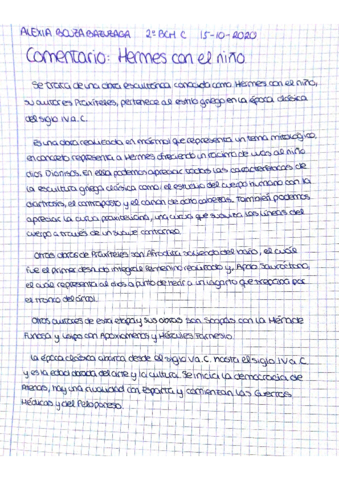 ALEXIA BOUZA BARUBAGA 2º BCH C 15-10-2020
Comentario: Hermes con el niño
Se trata de una obra escultórica conocida como Hermes con el niño,
su autor es Praxíteles, pertenece al estilo griego en la época clásica
del siglo IV a.C.
Es una obra realizada en mármol que representa un tema mitológico,
en concreto representa a Hermes ofreciendo un racimo de uvas al niño
dios Dionisos. En ella podemos apreciar todas las características de
la escultura griega clásica como: el estudio del cuerpo humano con la
diartrosis, el contraposto y el canon de ocho cabezas. También podemos
apreciar la curva praxiteliana, una curva que suaviza las líneas del
cuerpo a través de un suave contorneo.
Otras obras de Praxíteles son Afrodita saliendo del baño, el cual
fue el primer desnudo integral femenino realizado y, Apolo Sauróctono,
el cual representa al dios a punto de herir a un lagarto que trepaba por
el tronco del árbol.
Otros autores de esta etapa y sus obras son: Scopas con La Ménade
Furiosa y Lisipo con Apoxiomenos y Hércules Farnesio.
La época clásica abarca desde el siglo V a.C. hasta el siglo IV a.C
y es la edad dorada del arte y la cultura. Se inicia la democracia de
Atenas, hay una rivalidad con Esparta y comienzan las Guerras
Médicas y del Peloponeso.